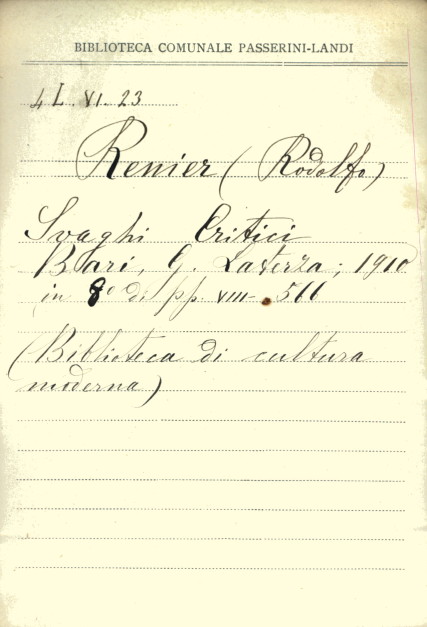 BIBLIOTECA COMUNALE PASSERINI-LANDI
4 L. VI. 23
Renier (Rodolfo)
Svaghi Critici
Bari, G. Laterza; 1910
in 8º di pp. VIII-566
(Biblioteca di cultura
moderna)